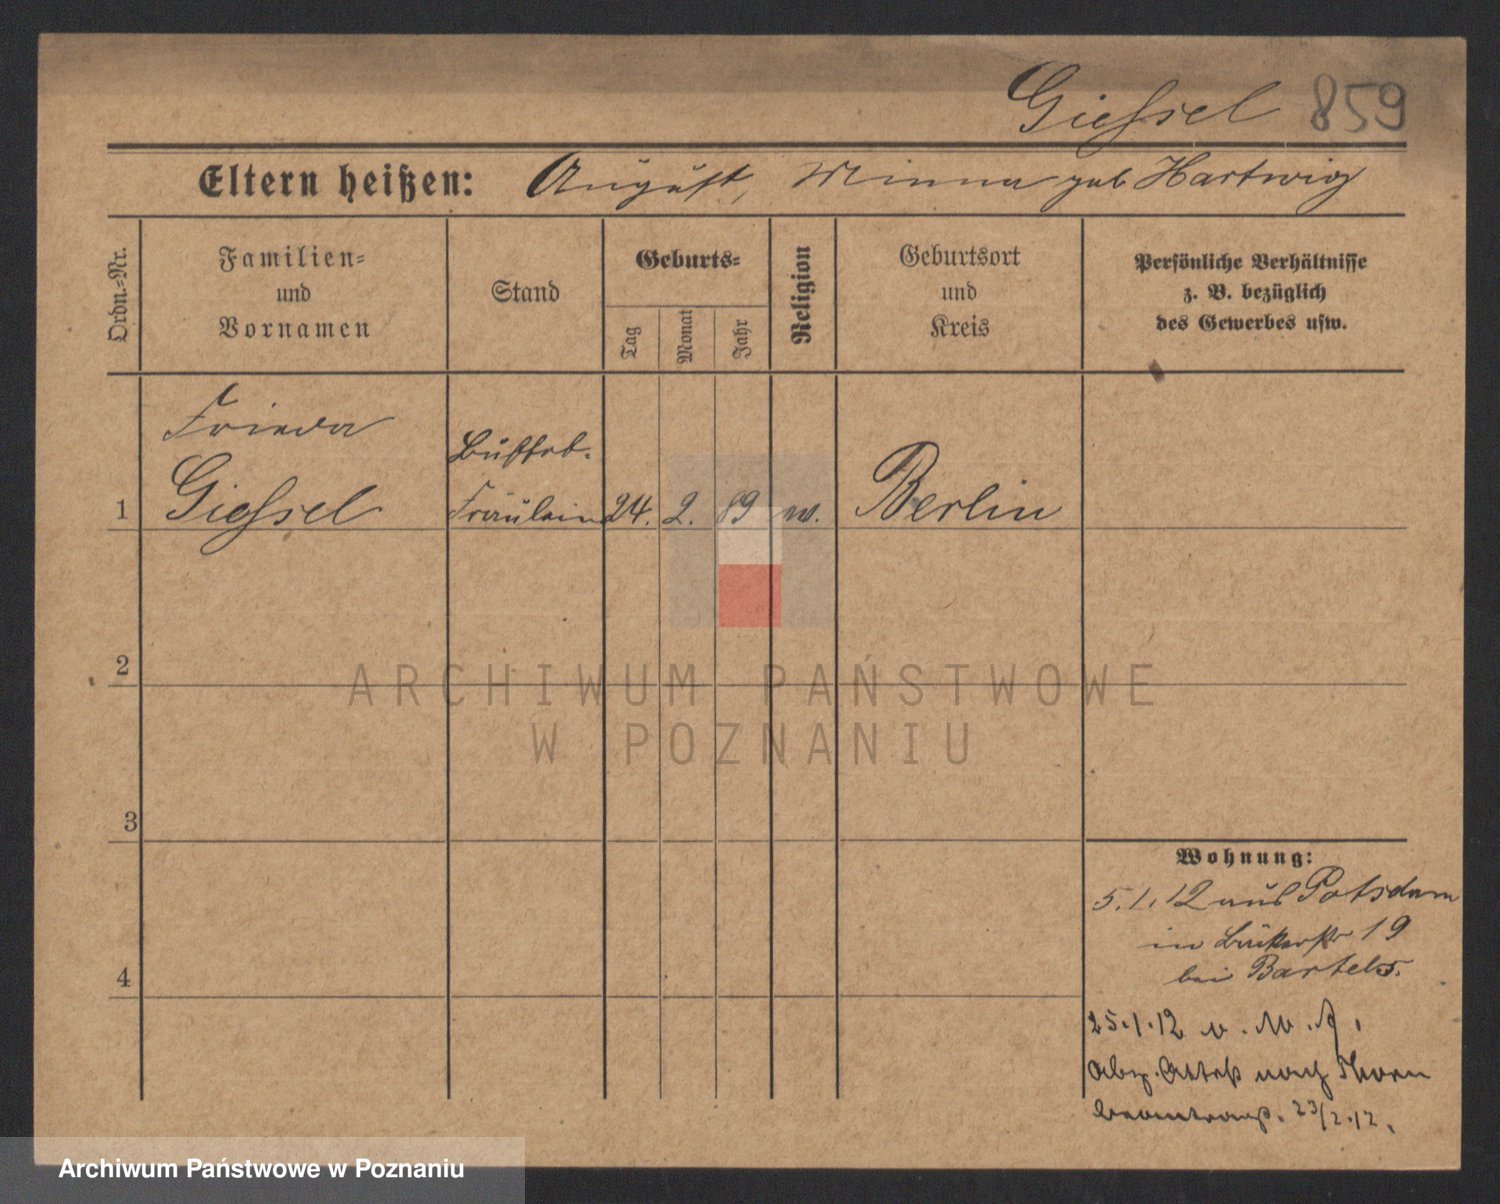 Gießsel 859
Eltern heißen: August, Minna geb Hartwig
Ordn.-Nr.
Familien-
und
Vornamen
Stand
Geburts-
Tag
Monat
Jahr
Religion
Geburtsort
und
Kreis
Persönliche Verhältnisse
z. B. bezüglich
des Gewerbes usw.
Frieda
Büfteb.
1 Giessel Fräulein 24. 2. 89 Berlin
2
ARCHIWUM PAŃSTWOWE
W POZNANIU
3
Wohnung:
5.1.12 aus Potsdam
in 19
bei Bartels.
4
25.1.12 v.
Abz. Attest nach Thorn
beantragt. 23/2.12.
Archiwum Państwowe w Poznaniu